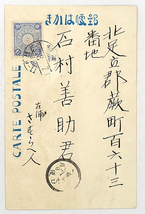 郵便はかき
CARTE POSTALE
北足立郡蕨町百六十三
番地
石村善助君